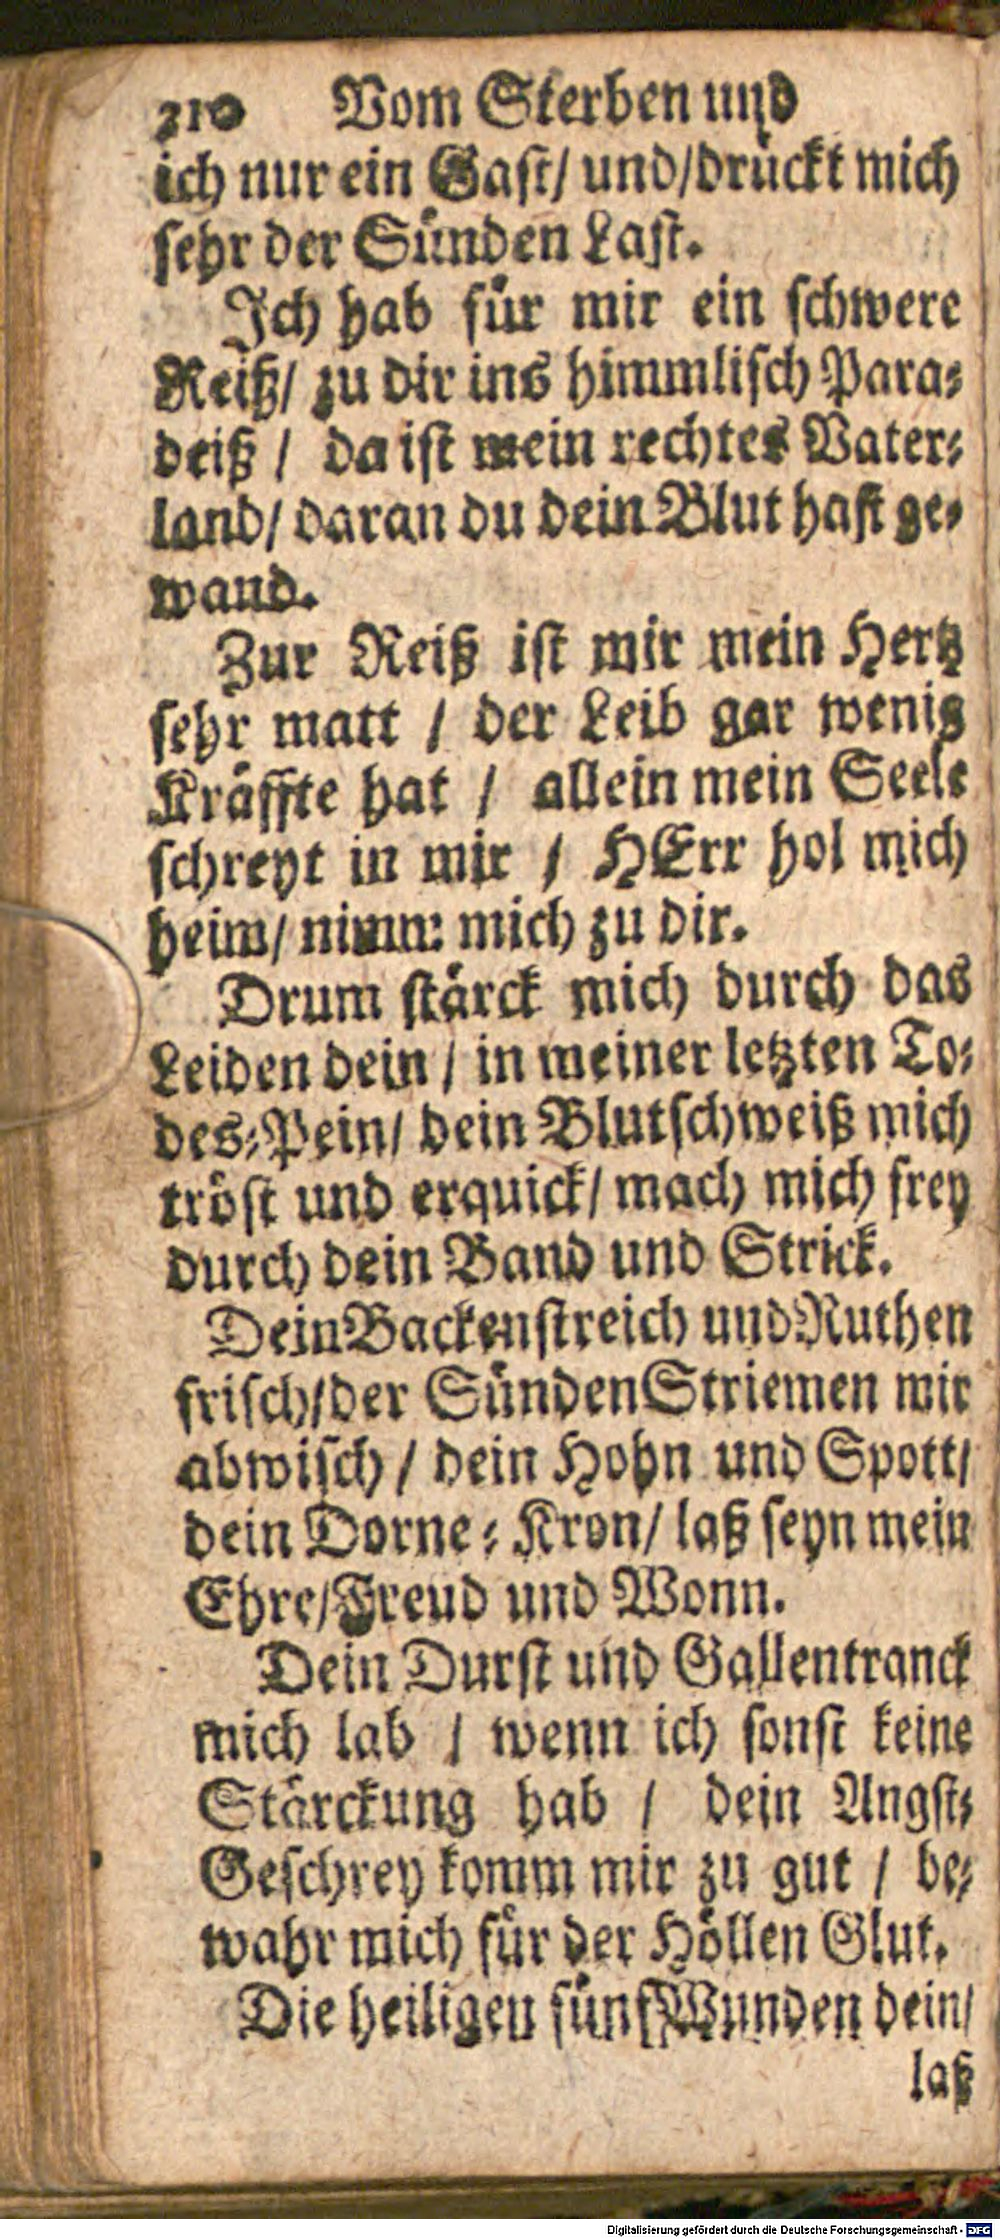 210 Vom Sterben und
ich nur ein Gaſt/ und/druͤckt mich
ſehr der Suͤnden Laſt.
Ich hab fuͤr mir ein ſchwere
Reiß/ zu dir ins himmliſch Para⸗
deiß / da iſt mein rechtes Vater⸗
land/ daran du dein Blut haſt ge⸗
wand.
Zur Reiß iſt mir mein Hertz
ſehr matt / der Leib gar wenig
Kraͤffte hat / allein mein Seele
ſchreyt in mir / HErr hol mich
heim/ nimm mich zu dir.
Drum ſtaͤrck mich durch das
Leiden dein / in meiner letzten To⸗
des⸗Pein/ dein Blutſchweiß mich
troͤſt und erquick/ mach mich frey
durch dein Band und Strick.
Dein Backenſtreich und Ruthen
friſch/der Suͤnden Striemen mir
abwiſch / dein Hohn und Spott/
dein Dorne⸗Kron/ laß ſeyn mein
Ehre/Freud und Wonn.
Dein Durſt und Gallentranck
mich lab / wenn ich ſonſt keine
Staͤrckung hab / dein Angſt⸗
Geſchrey komm mir zu gut / be⸗
wahr mich fuͤr der Hoͤllen Glut.
Die heiligen fuͤnf Wunden dein/
laß
Digitalisierung gefördert durch die Deutsche Forschungsgemeinschaft - DFG